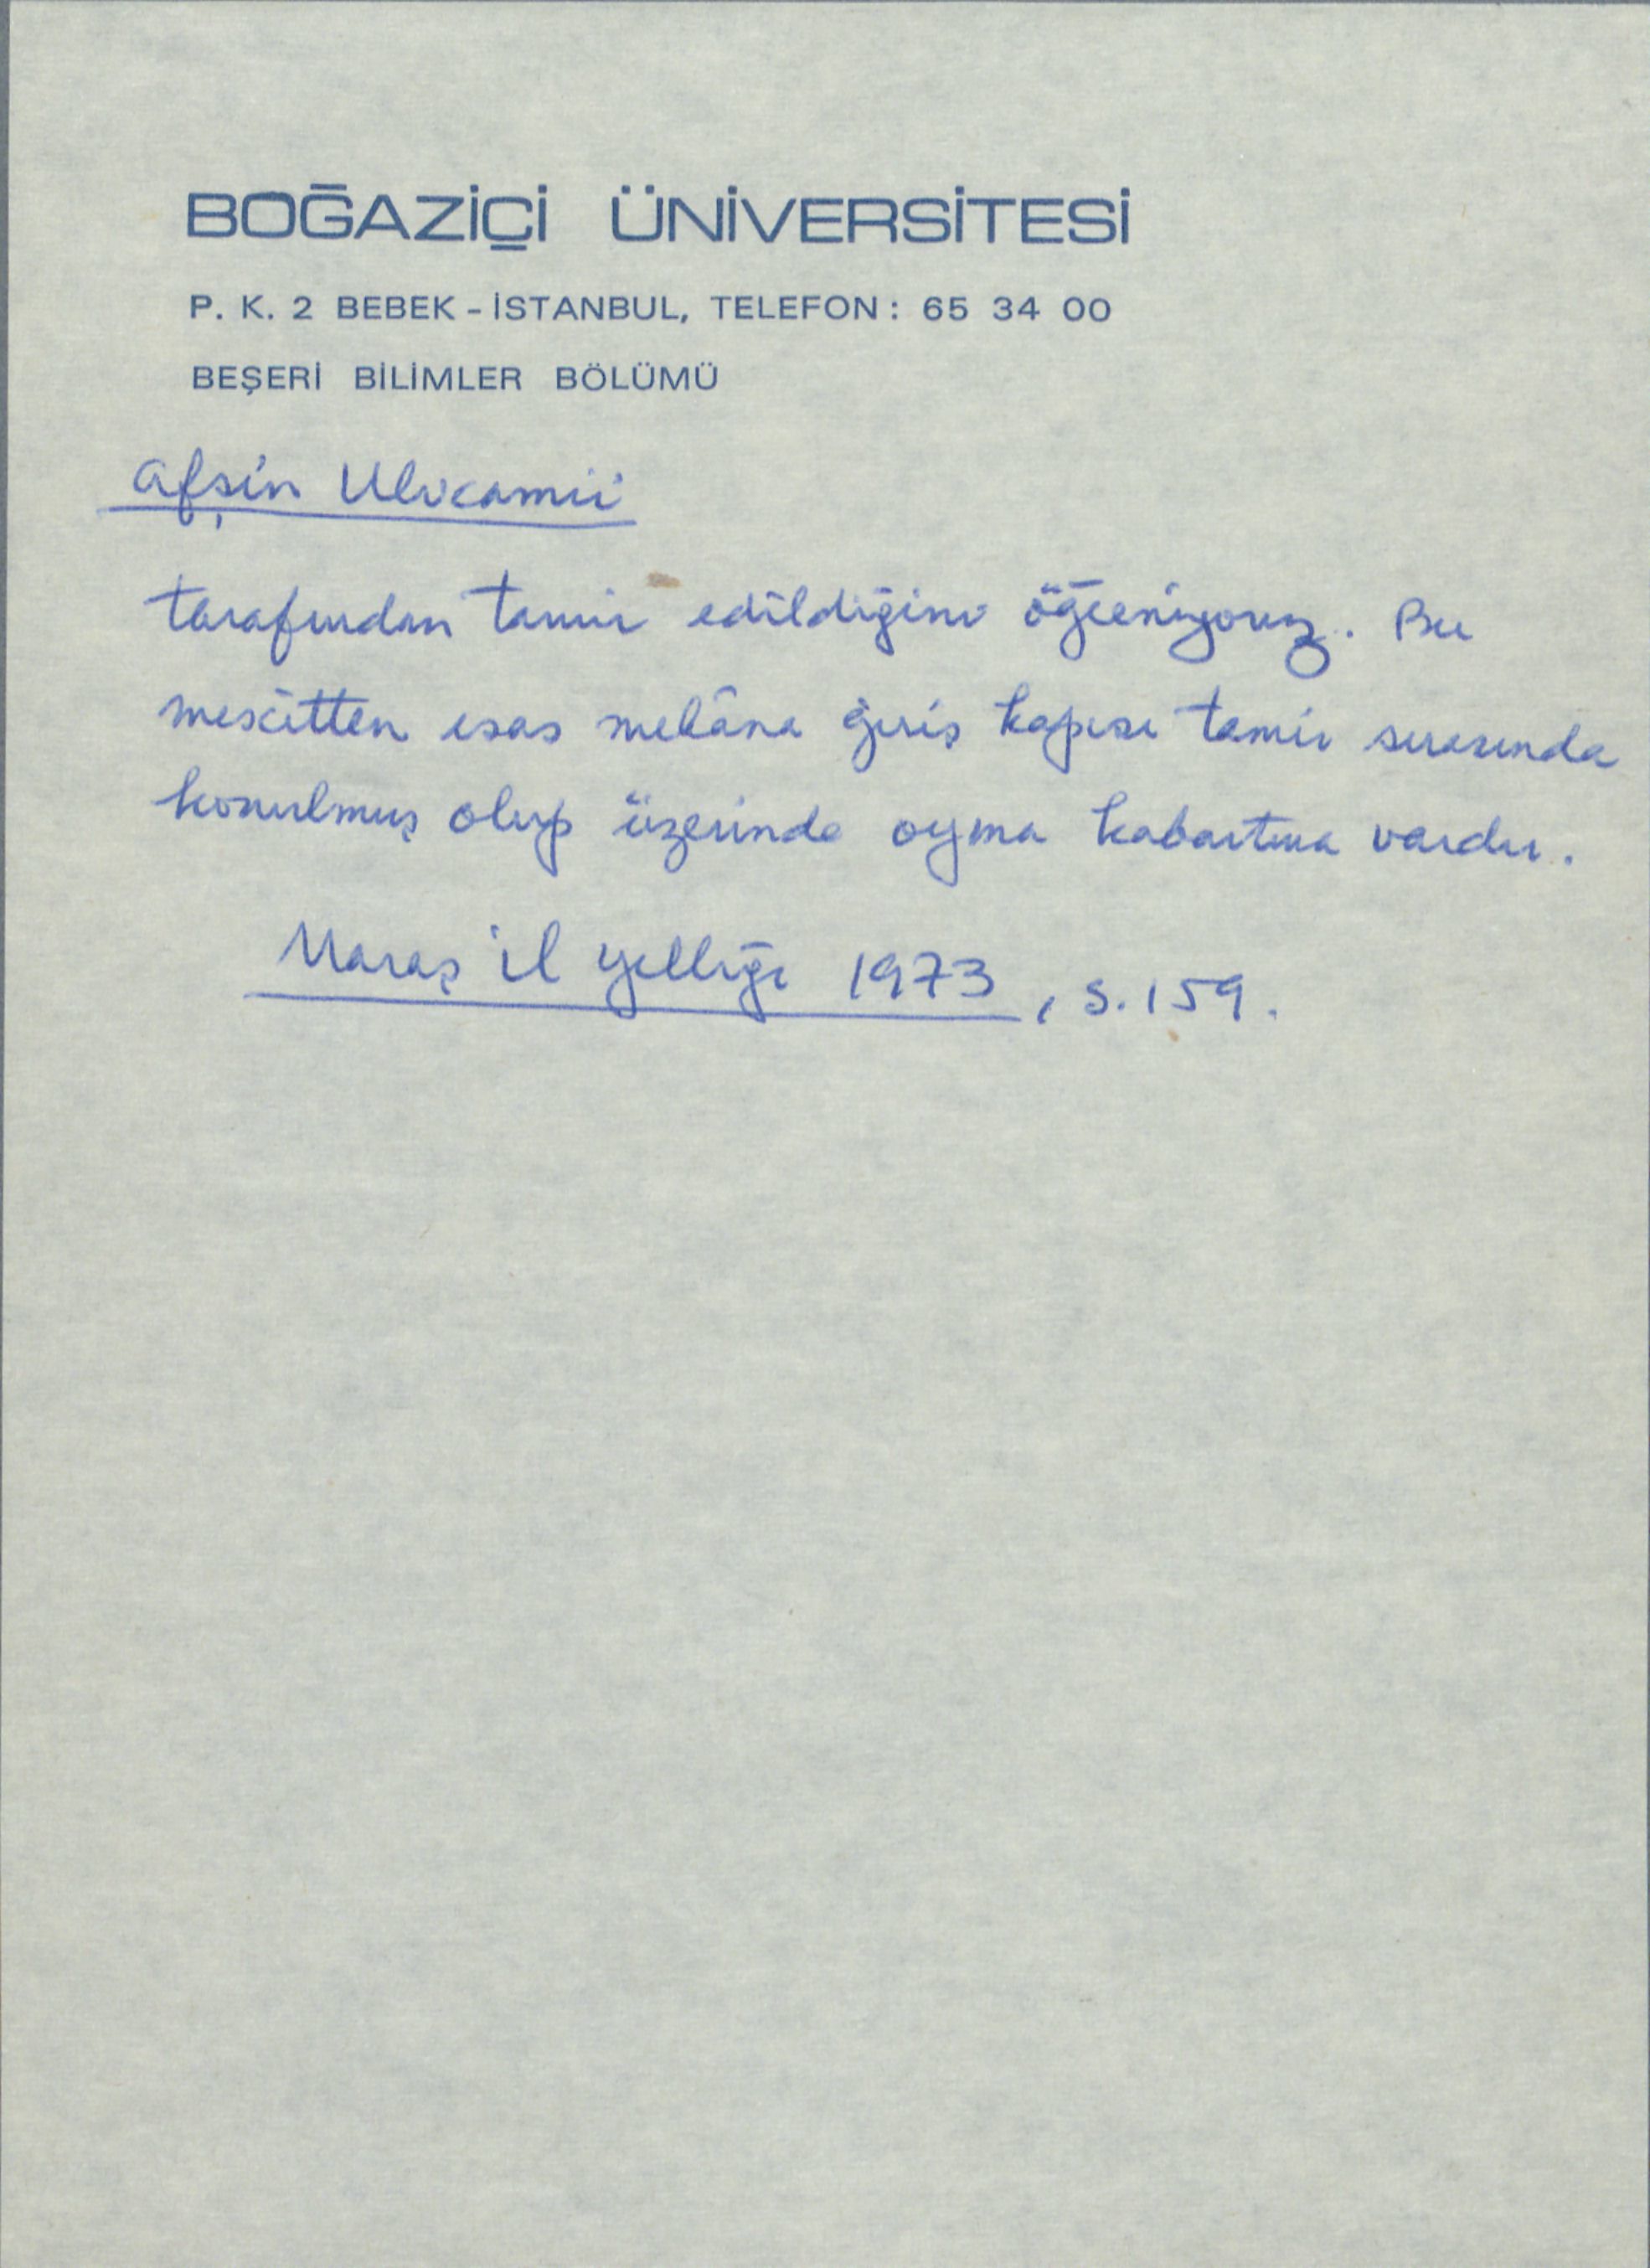 BOĞAZİÇİ ÜNİVERSİTESİ
P. K. 2 BEBEK - İSTANBUL, TELEFON : 65 34 00
BEŞERİ BİLİMLER BÖLÜMÜ
Afşin Ulucamii
tarafından tamir edildiğini öğreniyoruz. Bu
mescitten esas mekâna giriş kapısı tamir sırasında
konulmuş olup üzerinde oyma kabartma vardır.
Maraş İl Yıllığı 1973, s. 159.